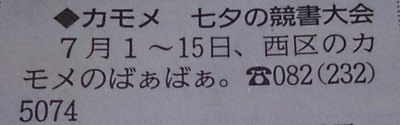 ◆カモメ 七夕の競書大会
7月1〜15日、西区のカ
モメのばぁばぁ。☎082(232)
5074